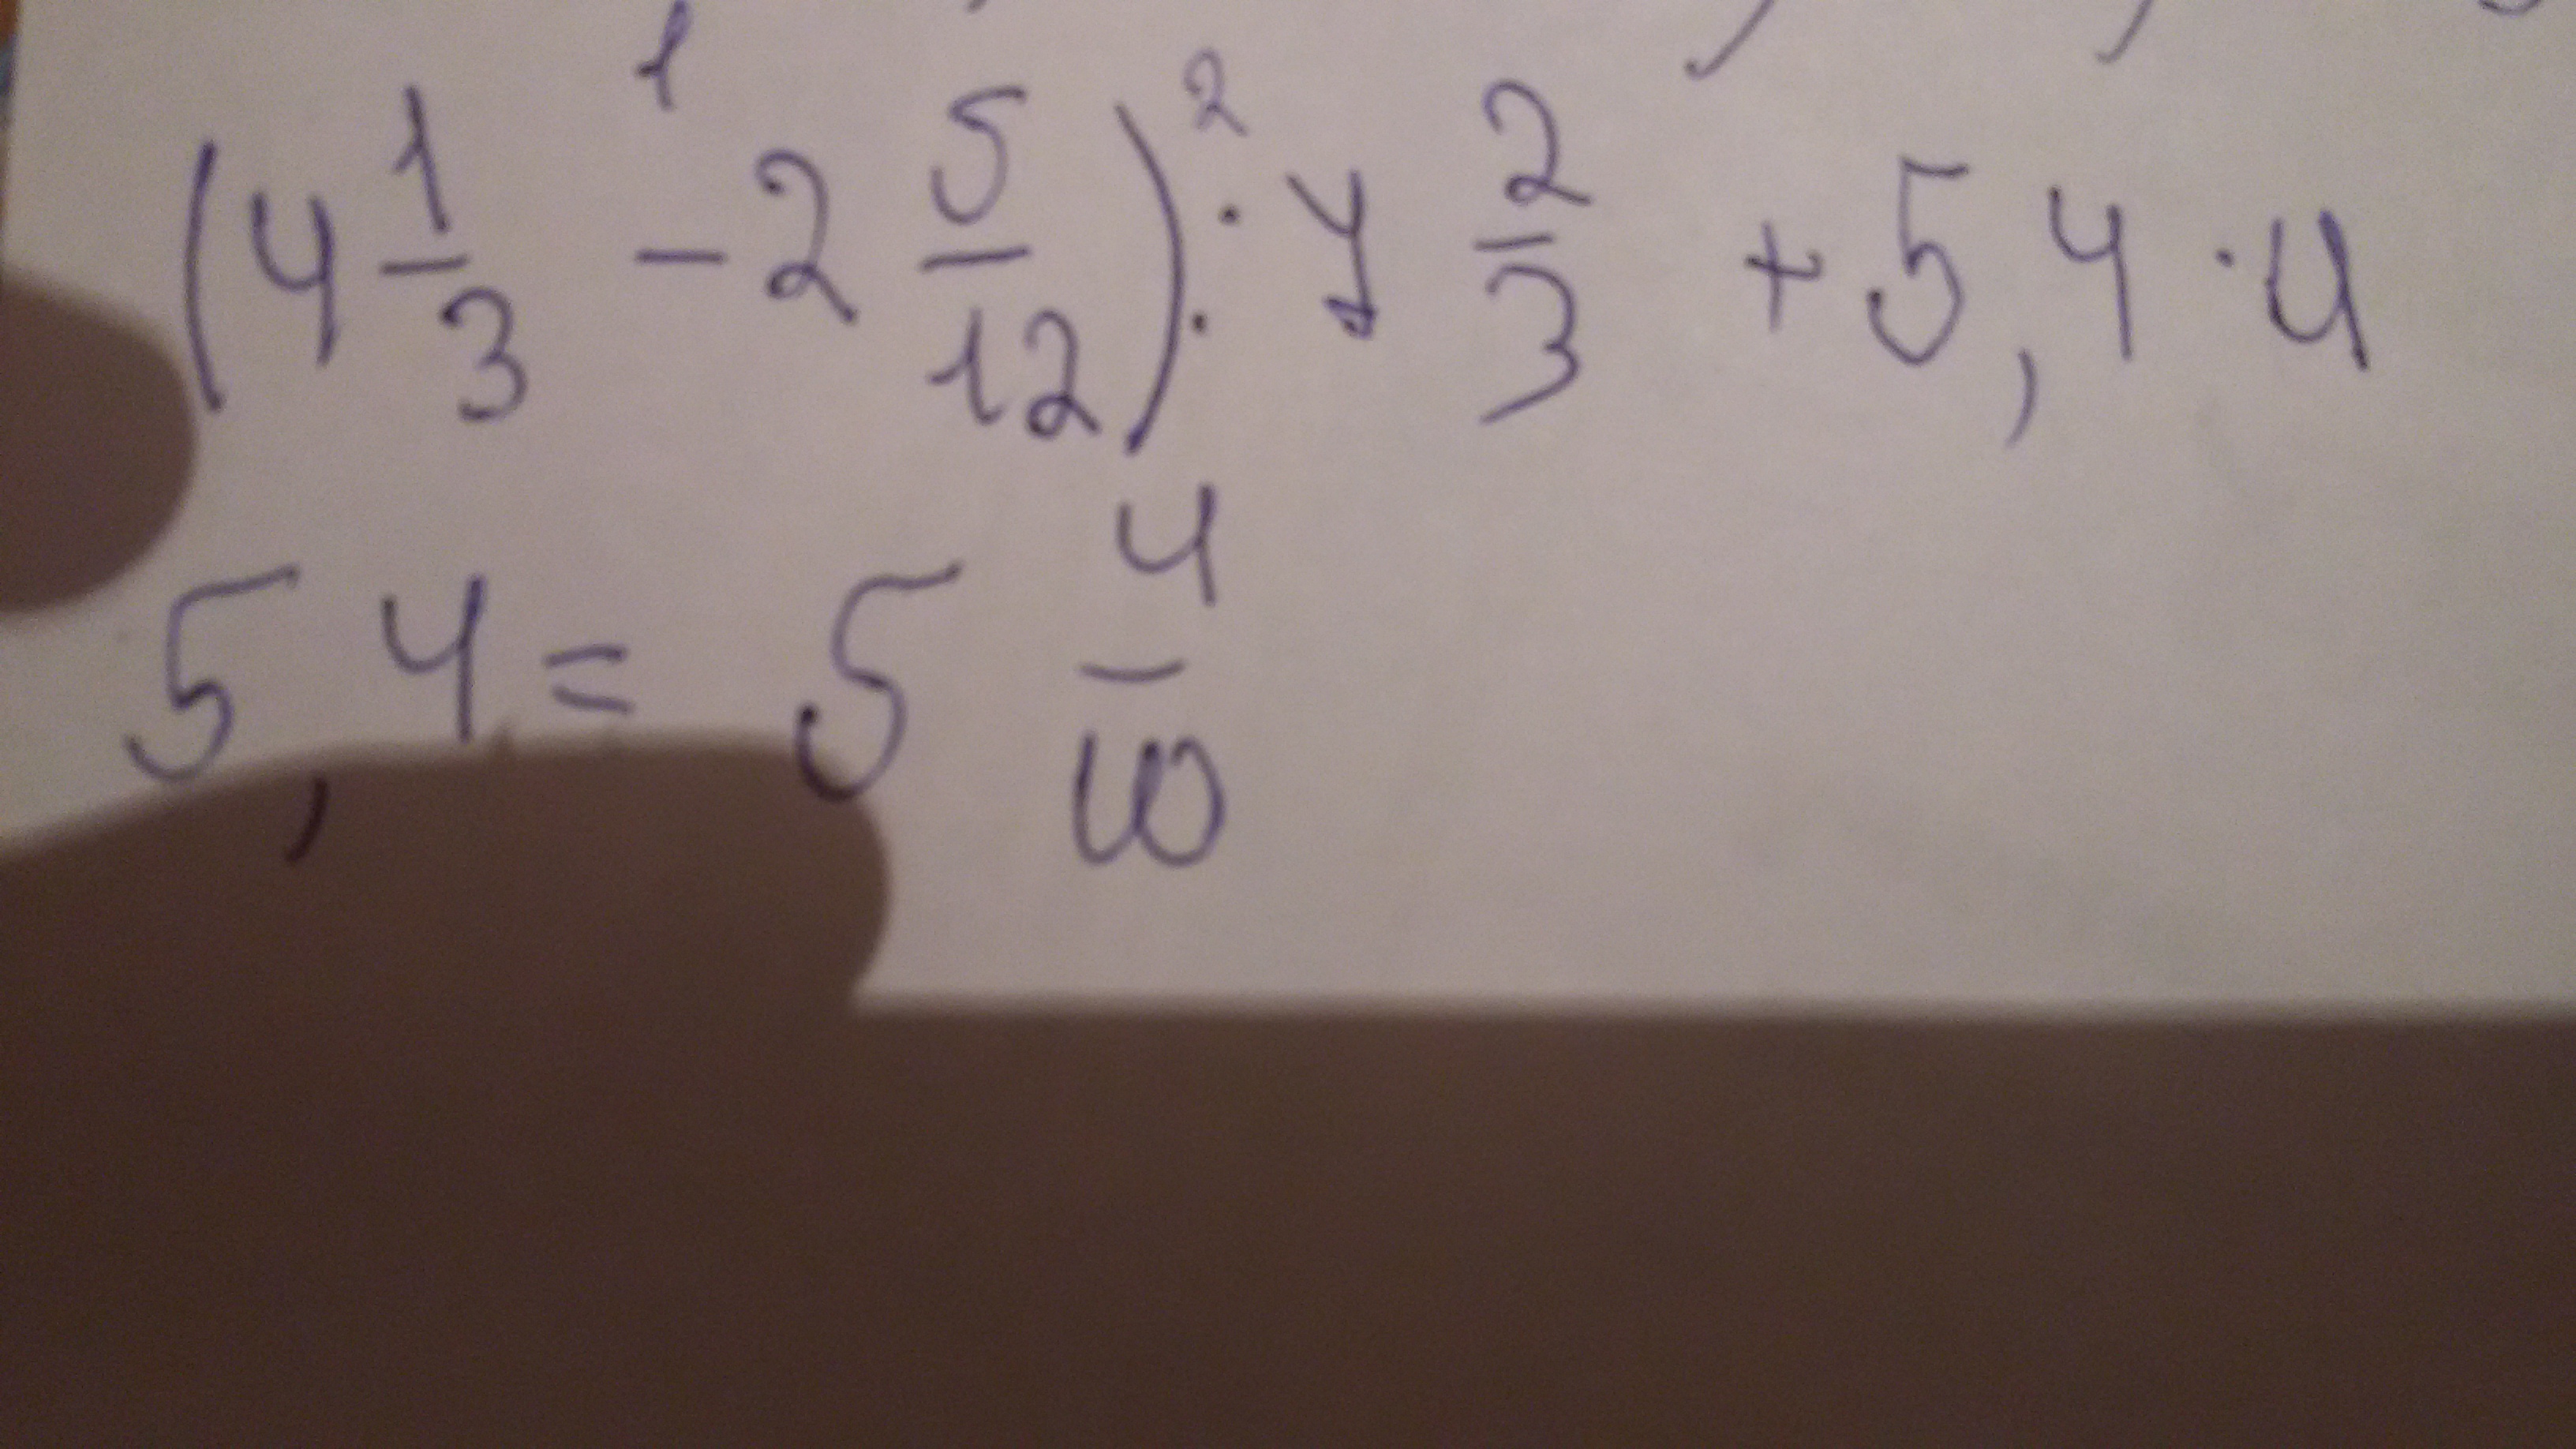 1 2
(4 1/3 - 2 5/12) : 7 2/3 + 5,4 · 4
5,4 = 5 4/10